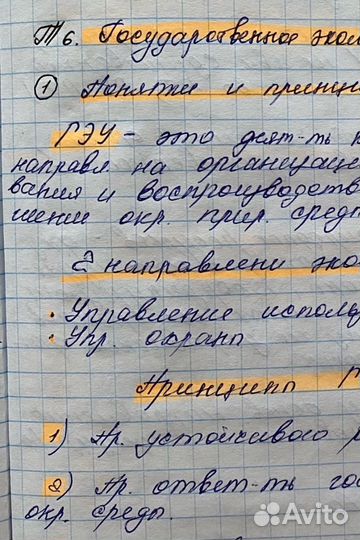 Т 6. Государственное экол
① Понятие и принци
ГЭУ - это деят-ть
направл. на организаци
вания и воспроизводств
шении окр. прир. среды
2 направлени эко
• Управление использ
• Упр. охраны
Принципы Г
1) Пр. устойчивого р
2) Пр. ответ-ть гос
окр. среды.
Avito